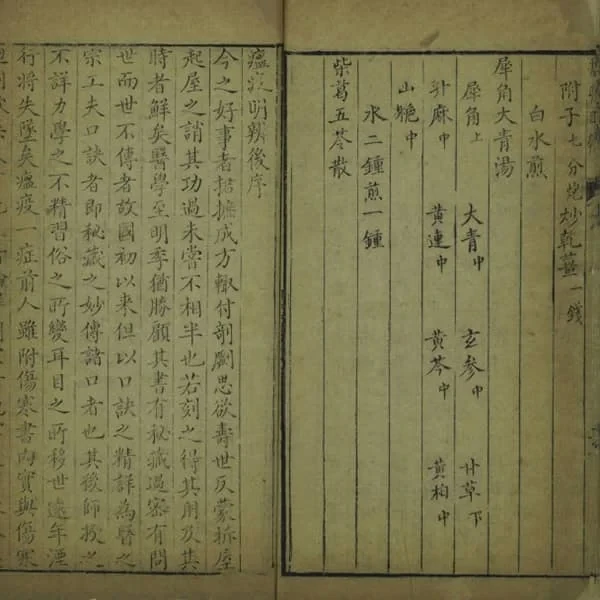 附子七分炮炒乾薑一錢
白水煎
犀角大青湯
犀角上 大青中 玄參中 甘草下
升麻中 黃連中 黃芩中 黃柏中
山梔中
水二鍾煎一鍾
柴葛五苓散
瘟疫明辨後序
今之好事者拮摭成方輙付剞劂思欲壽世反蒙拆屋
起屋之誚其功過未嘗不相半也若刻之得其用及其
時者鮮矣醫學至明季猶勝顧其書有秘藏過密有問
世而世不傳者故國初以來但以口訣之精詳為醫之
宗工夫口訣者即秘藏之妙傳諸口者也其後師授之
不詳力學之不精習俗之所變耳目之所移世遠年湮
行將失墜矣瘟疫一症前人雖附傷寒書內實與傷寒